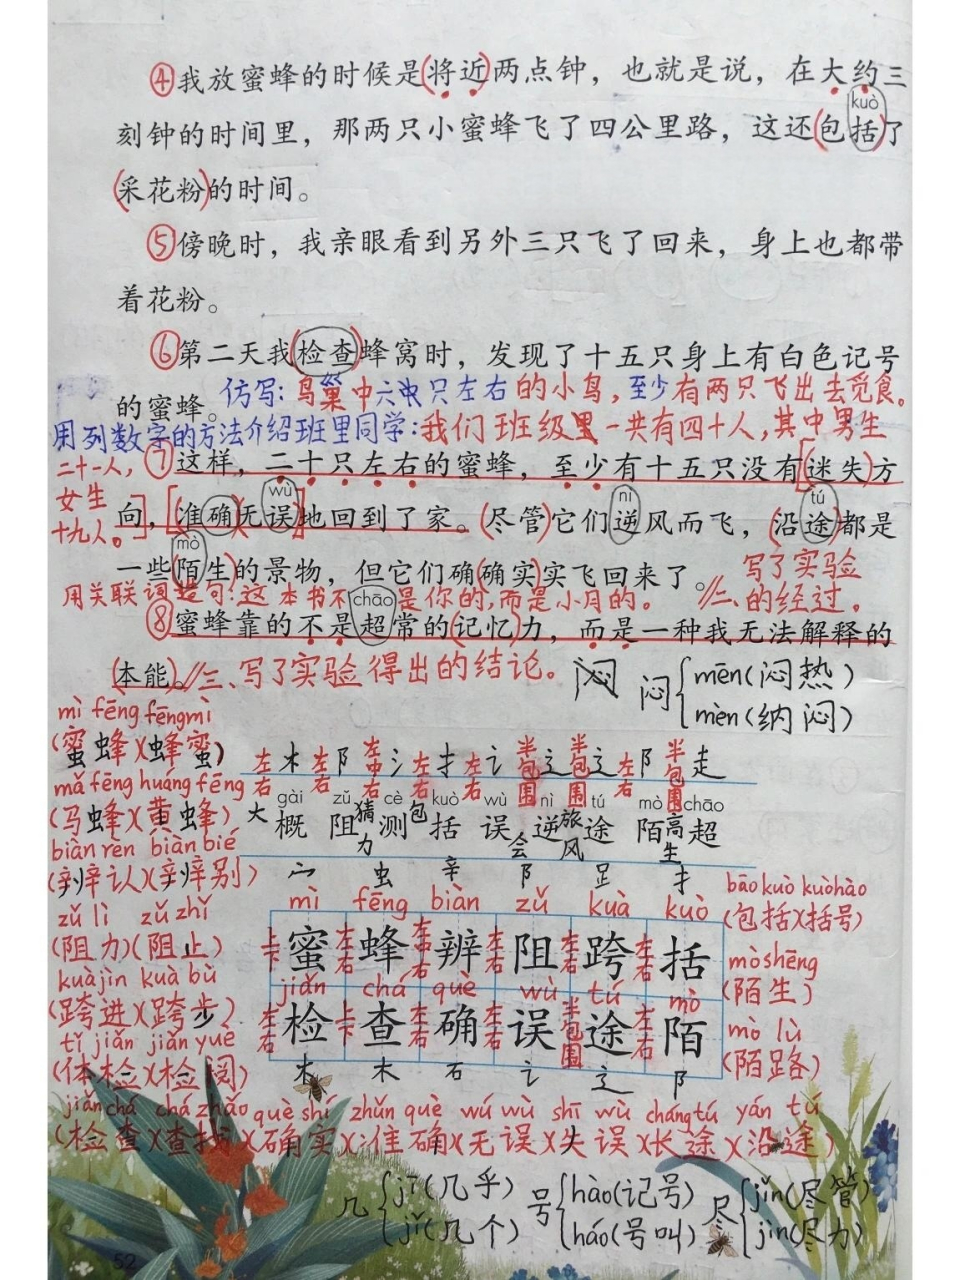 ④我放蜜蜂的时候是(将近)两点钟，也就是说，在大约三
kuò
刻钟的时间里，那两只小蜜蜂飞了四公里路，这还(包括)了
(采花粉)的时间。
⑤傍晚时，我亲眼看到另外三只飞了回来，身上也都带
着花粉。
⑥第二天我(检查)蜂窝时，发现了十五只身上有白色记号
的蜜蜂。
仿写：鸟巢中六只左右的小鸟，至少有两只飞出去觅食。
用列数字的方法介绍班里同学：我们班级里一共有四十人，其中男生
二十一人，
女生
十九人。
⑦这样，二十只左右的蜜蜂，至少有十五只没有[迷失方
wù nì tú
向]，[(准确)(无误)]地回到了家。(尽管)它们逆风而飞，(沿途)都是
mò
一些(陌生)的景物，但它们确确实实飞回来了。
写了实验
二、的经过。
用关联词造句：这本书不是你的，而是小月的。
chāo
⑧蜜蜂靠的不是超常的(记忆)力，而是一种我无法解释的
(本能)。
三、写了实验得出的结论。
闷 mēn(闷热)
mèn(纳闷)
mì fēng fēng mì
(蜜蜂)(蜂蜜)
mǎ fēng huáng fēng
(马蜂)(黄蜂)
biàn rèn biàn bié
(辨认)(辨别)
zǔ lì zǔ zhǐ
(阻力)(阻止)
kuà jìn kuà bù
(跨进)(跨步)
tǐ jiǎn jiǎn yuè
(体检)(检阅)
左右 木 左右 阝 左中右 氵 左右 扌 左右 讠 半包围 辶 半包围 辶 左右 阝 半包围 走
gài zǔ cè kuò wù nì tú mò chāo
大概 阻力 猜测 包括 误会 逆风 旅途 陌生 高超
宀 虫 辛 阝 足 扌
mì fēng biàn zǔ kuà kuò
蜜 蜂 辨 阻 跨 括
jiǎn chá què wù tú mò
检 查 确 误 途 陌
木 木 石 讠 辶 阝
bāo kuò kuò hào
(包括)(括号)
mò shēng
(陌生)
mò lù
(陌路)
jiǎn chá chá zhǎo què shí zhǔn què wú wù shī wù cháng tú yán tú
(检查)(查找)(确实)(准确)(无误)(失误)(长途)(沿途)
几 jī(几乎)
jǐ(几个)
号 hào(记号)
háo(号叫)
尽 jǐn(尽管)
jìn(尽力)
52